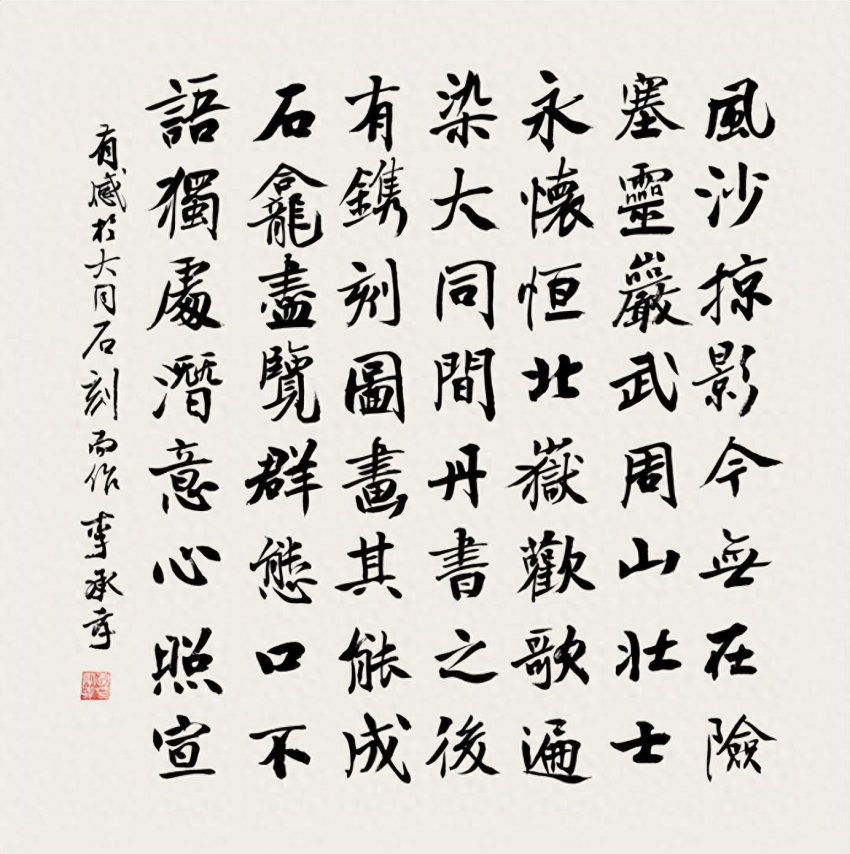 風沙掠影今無在險
塞靈巖武周山壯士
永懷恒北嶽歡歌遍
染大同間丹書之後
有鐫刻圖畫其能成
石龕盡覽群態口不
語獨處潛意心照宣
有感於大同石刻而作 李承孝